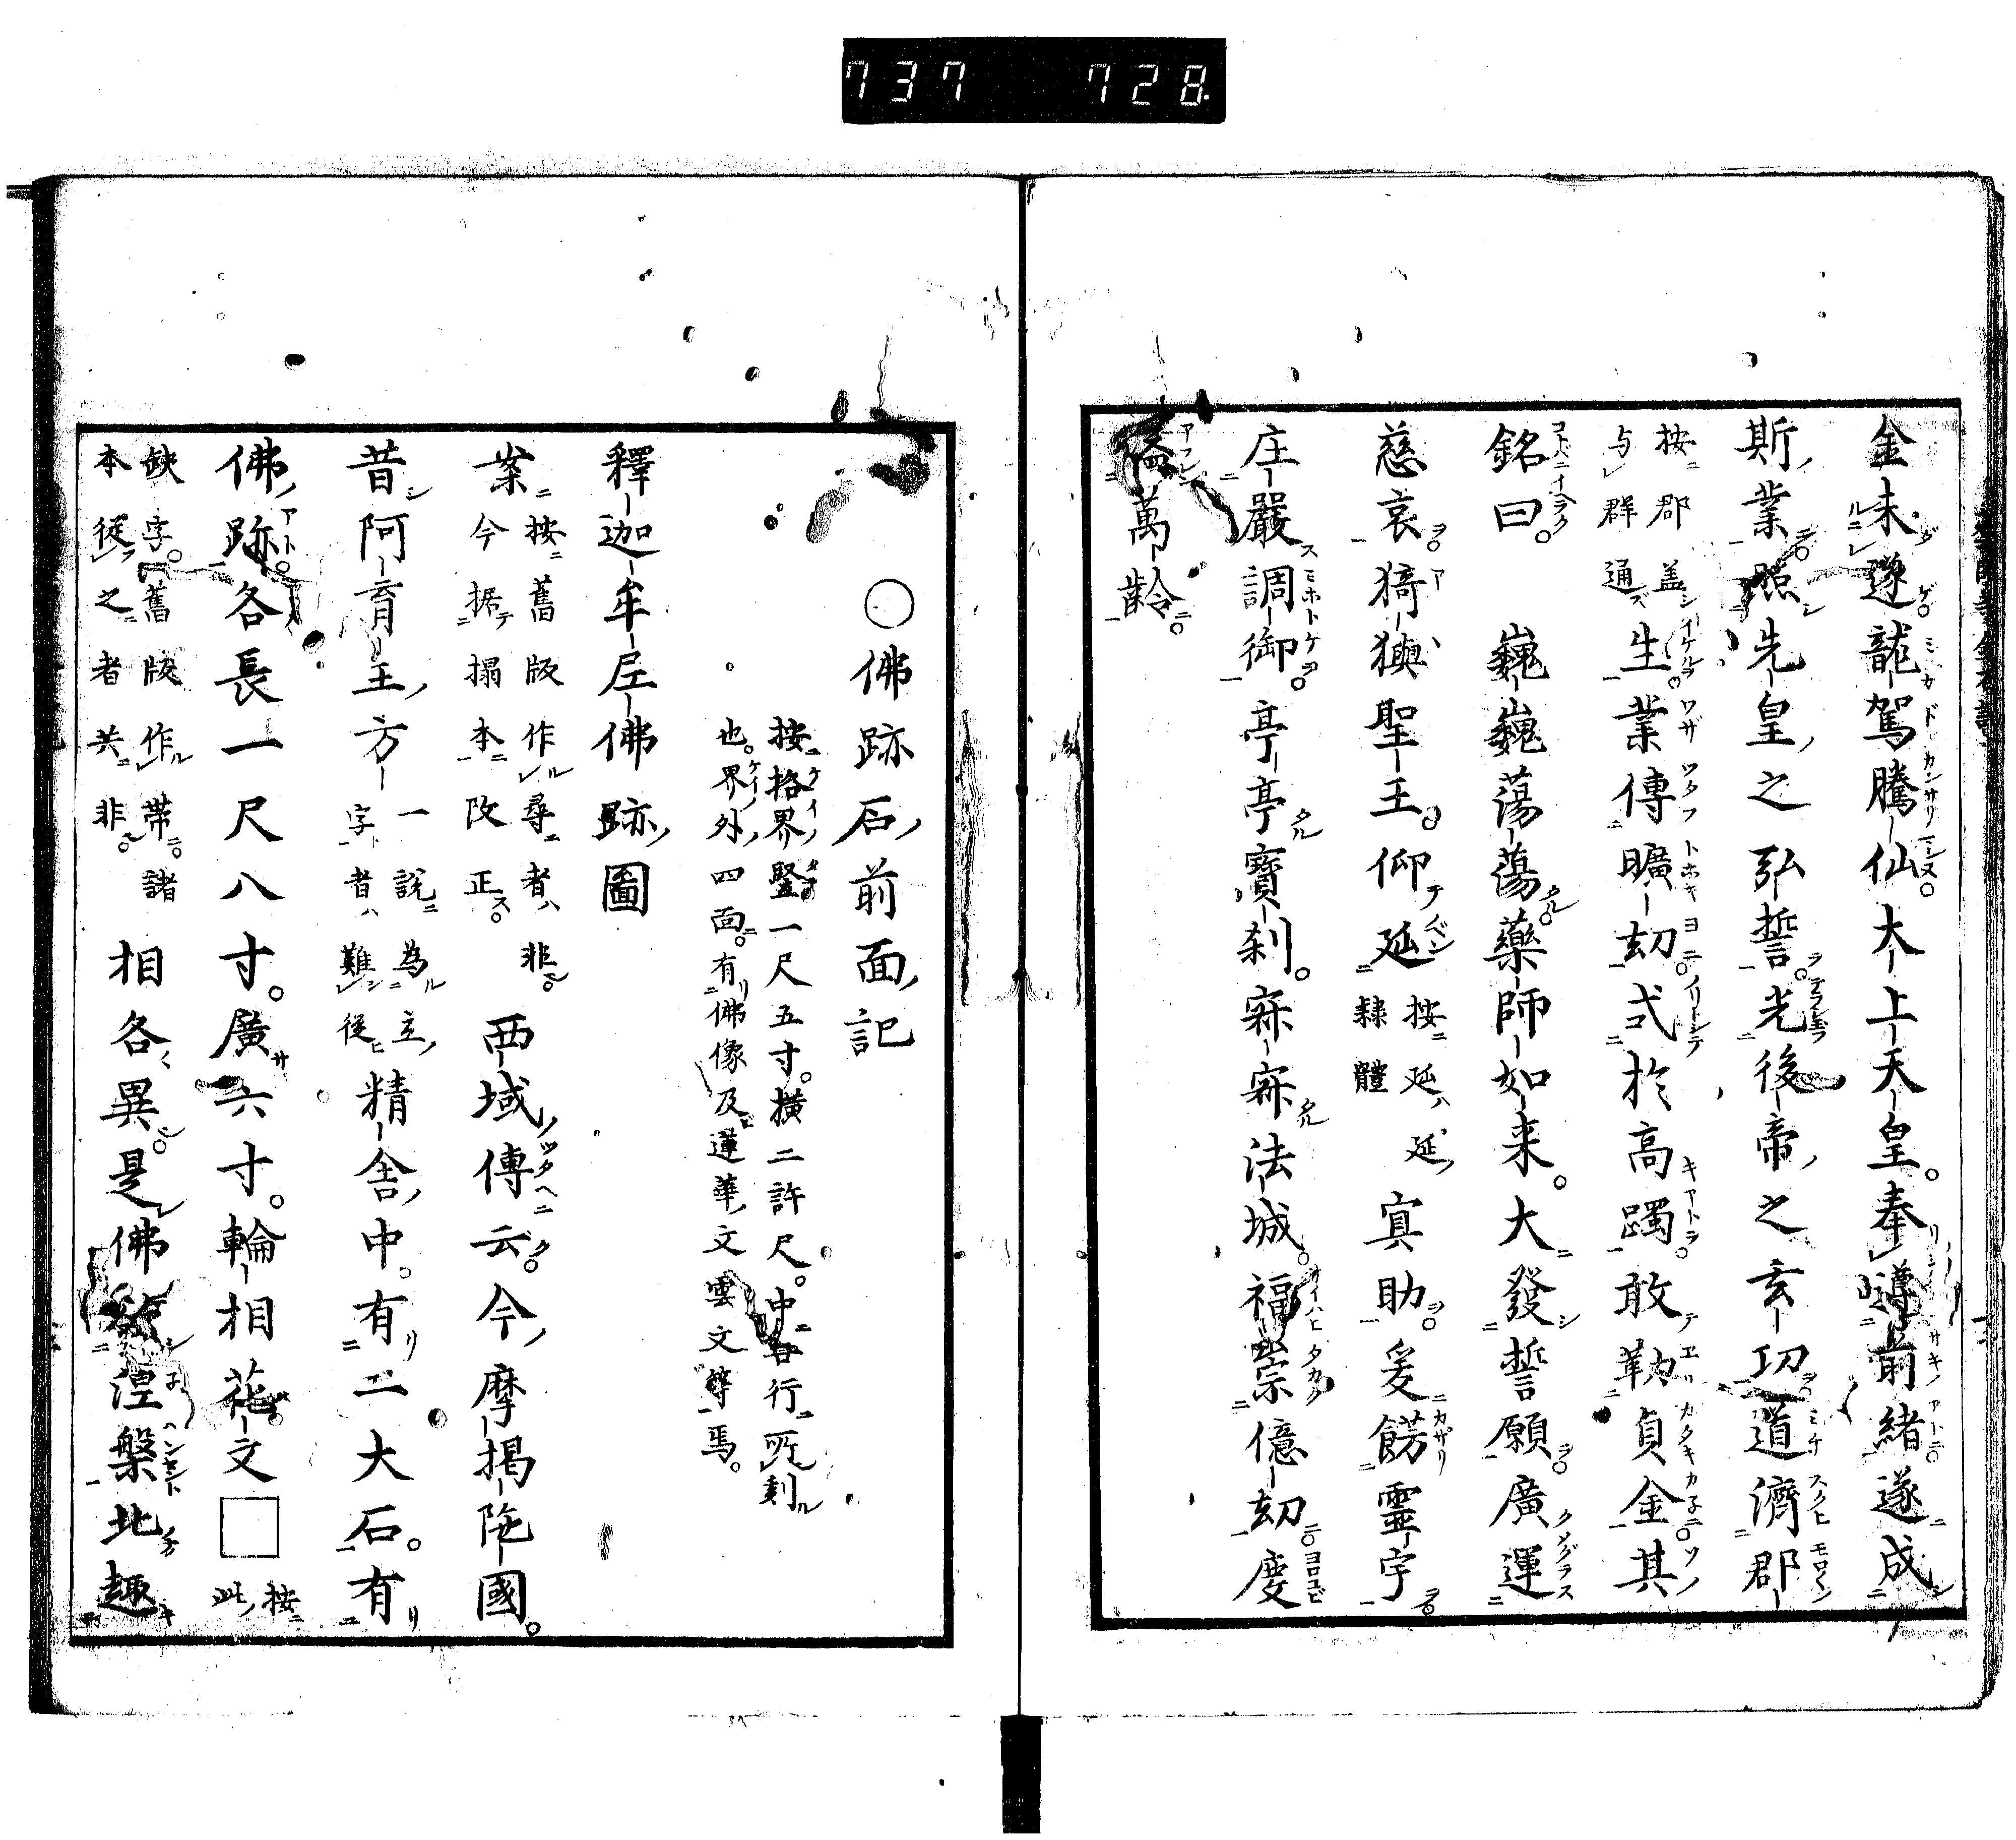 737 728
金未遂龍駕騰仙大上天皇奉遵前緒遂成
斯業照先皇之弘誓光後帝之玄功道濟郡
按郡盖
与群通
生業傳曠劫式於高躅敢勒貞金其
銘曰 巍巍蕩蕩藥師如来大發誓願廣運
慈哀猗㺞聖王仰延
按延延
隸體
冥助爰餝靈宇
庄嚴調御亭亭寶刹寂寂法城福崇億劫慶
溢萬齡
○佛跡石前面記
按格界竪一尺五寸横二許尺中各行所刻
也界外四面有佛像及蓮華文雲文等焉
釋迦牟尼佛跡圖
案
按舊版作尋者非
今据搨本改正
西域傳云今摩揭陁國
昔阿育王方
一説為立
字者難從
精舎中有二大石有
佛跡各長一尺八寸廣六寸輪相花文□
按
此
缺字舊版作帯諸
本従之者共非
相各異是佛欲涅槃北趣